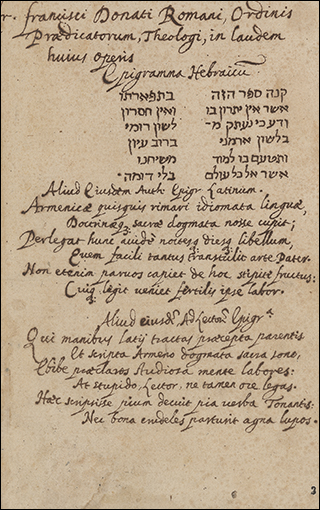 r. francisci Donati Romani, Ordinis
Prædicatorum, Theologi, in laudem
huius operis
Epigramma Hebraicū
קנה ספר הזה בתפארתו
אשר אין יתרון בו ואין חסרון
ודע כי נעתק מ- לשון רומי
בלשון ארמני ברוב עיון
ותטעם בו למוד משיחנו
אשר אל כל עולם בלי דומה
Aliud Eiusdem Auth: Epigr Latinum.
Armenicæ quisquis rimari idiomata linguæ,
Doctrinæq; sacræ dogmata nosse cupit;
Perlegat hunc auide noctesq; diesq; libellum,
Quem facili tantus transtulit arte Pater.
Non etenim paruos capiet de hoc stipite fructus:
Cuiq; legit veniet fertilis ipse labor.
Aliud eiusd. Ad Lector. Epigr.
Qui manibus latij tractas præcepta parentis
Et scripta Armeno dogmata sacra sono,
Ebibe præclaros studiosa mente labores:
At stupido, Lector, ne tamen ore legas.
Hæc scripsisse pium decuit pia verba Tonantis:
Nec bona crudeles parturit agna lupos.
3